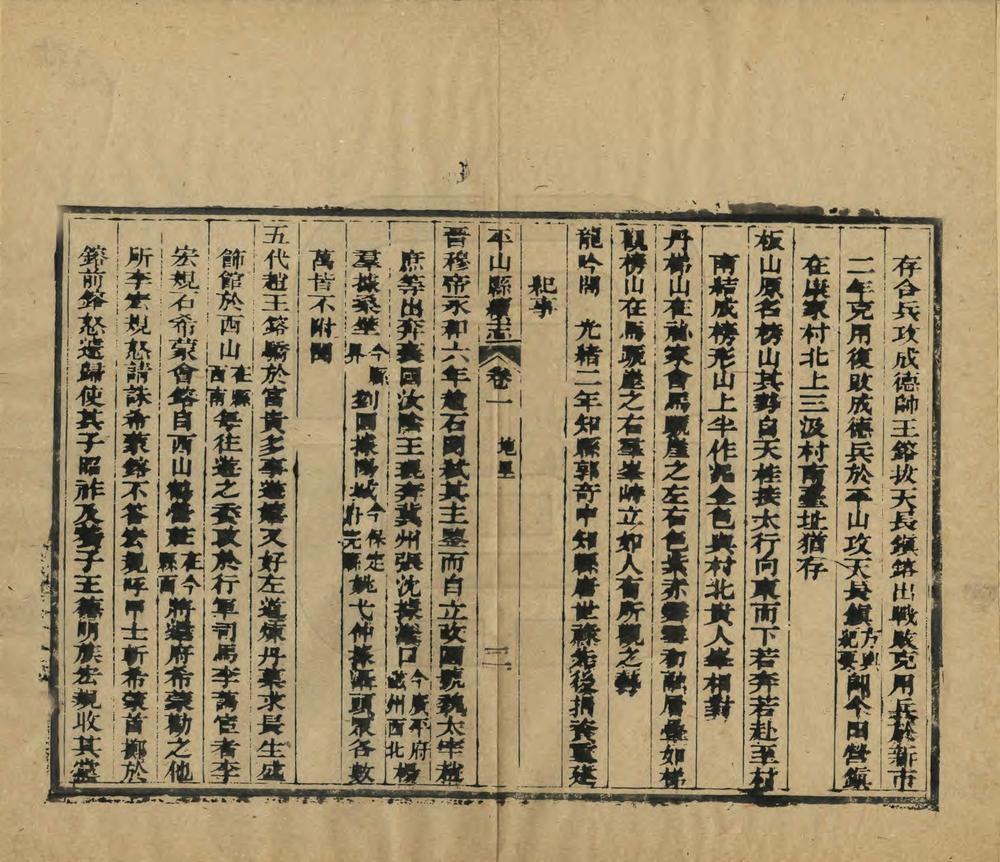 存合兵攻成德帥王鎔拔天長鎮鎔出戰敗克用兵於新市
二年克用復敗成德兵於平山攻天長鎮方輿紀要即今田營鎮
在康家村北上三汲村南臺址猶存
板山原名榜山其勢自天桂接太行向東而下若奔若赴至村
南結成榜形山上半作泥金色與村北貴人峯相對
丹梯山在孫家會馬驥崖之左右色紫赤靈雲初融層疊如梯
觀榜山在馬驥崖之右羣峯峙立如人有所觀之勢
龍吟閣 光緒二年知縣郭奇中知縣唐世祿先後捐資重建
紀事
平山縣續志 卷一 地里 二
晉穆帝永和六年趙石閔弒其主鑒而自立改國號魏太宰趙
庶等出奔襄國汝陰王琨奔冀州張沈據滏口今廣平府磁州西北楊
羣據桑壁今縣界劉國據陽城今保定府完縣姚弋仲據灄頭眾各數
萬皆不附閔
五代趙王鎔驕於富貴多事遊嬉又好左道煉丹藥求長生盛
飾館於西山在縣西南每往遊之委政於行軍司馬李藹宦者李
宏規石希蒙會鎔自西山鶻營莊在今縣西將還府希蒙勸之他
所李宏規怒請誅希蒙鎔不答宏規呼甲士斬希蒙首擲於
鎔前鎔怒遣歸使其子昭祚及養子王德明族宏規收其黨